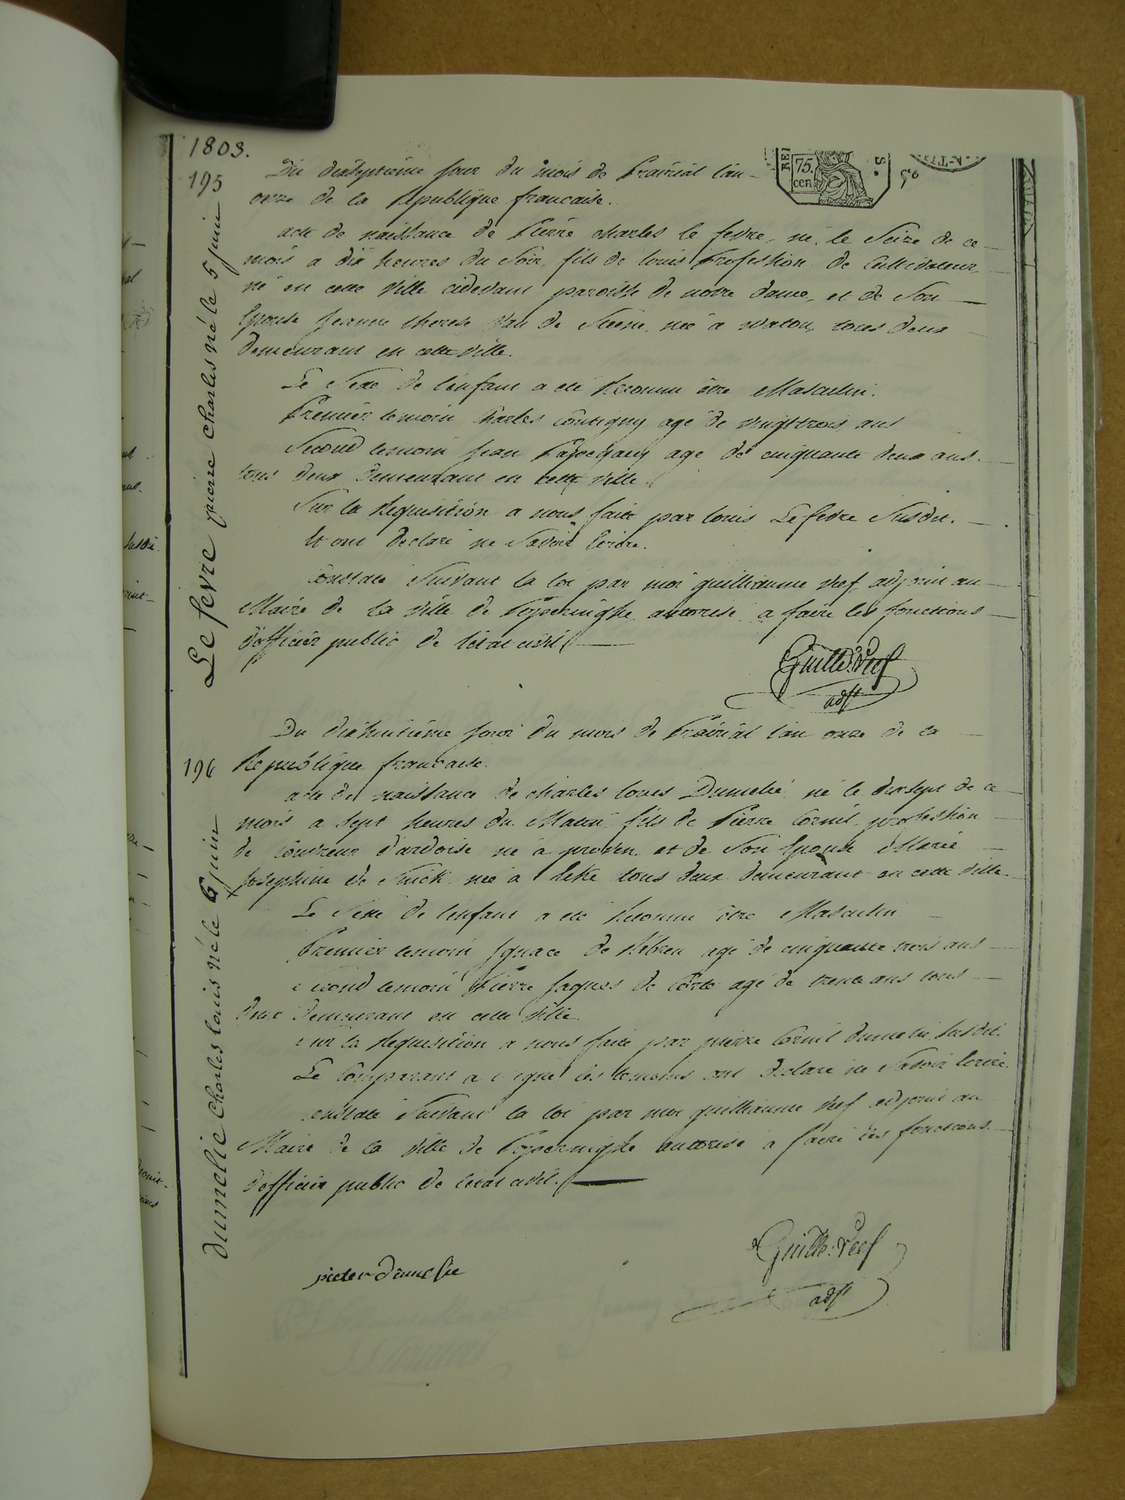 1803.
195
REI
75.
cen
S
Le fevre pierre charles né le 5 juin
Du dixseptieme jour du mois de Prairial l'an
onze de la Republique francaise.
acte de naissance de Pierre charles le fevre, né le seize de ce
mois a dix heures du soir, fils de louis Profession de Cultivateur
né en cette ville cidevant paroisse de notre dame, et de son
Epouse Jeanne therese Van de née a watou, tous deux
demeurant en cette ville.
Le Sexe de l'enfant a été Reconnu être Masculin.
Premier temoin Charles agé de vingttrois ans
Second temoin Jean agé de cinquante deux ans.
tous deux demeurant en cette ville.
Sur la Requisition a nous faite par louis Lefevre Susdit.
Et ont declaré ne Savoir Ecrire.
Constaté Suivant la loi par moi guilliaume Veef adjoint au
Maire de la Ville de Poperinghe autorisé a faire les fonctions
d'officier public de l'etat civil
Guille: Veef
adjt
196
dumelie Charles louis né le 6 juin
Du dixhuitième jour du mois de Prairial l'an onze de la
Republique francaise.
acte de naissance de charles louis Dumelié né le dixsept de ce
mois a sept heures du Matin fils de Pierre Cornil profession
de Couvreur d'ardoise né a proven et de Son Epouse Marie
Josephine de née a tous deux demeurant en cette ville.
Le Sexe de l'enfant a été Reconnu être Masculin
Premier temoin Ignace de agé de cinquante trois ans
Second temoin Pierre Jaques de agé de trente ans tous
deux demeurant en cette ville.
Sur la Requisition a nous faite par pierre Cornil dumelié Susdit.
Le Comparant a signé les temoins ont declaré ne Savoir Ecrire
Constaté Suivant la loi par moi guilliaume Veef adjoint au
Maire de la Ville de Poperinghe autorisé a faire les fonctions
d'officier public de l'etat civil.
pieter dumelie
Guille: Veef
adjt